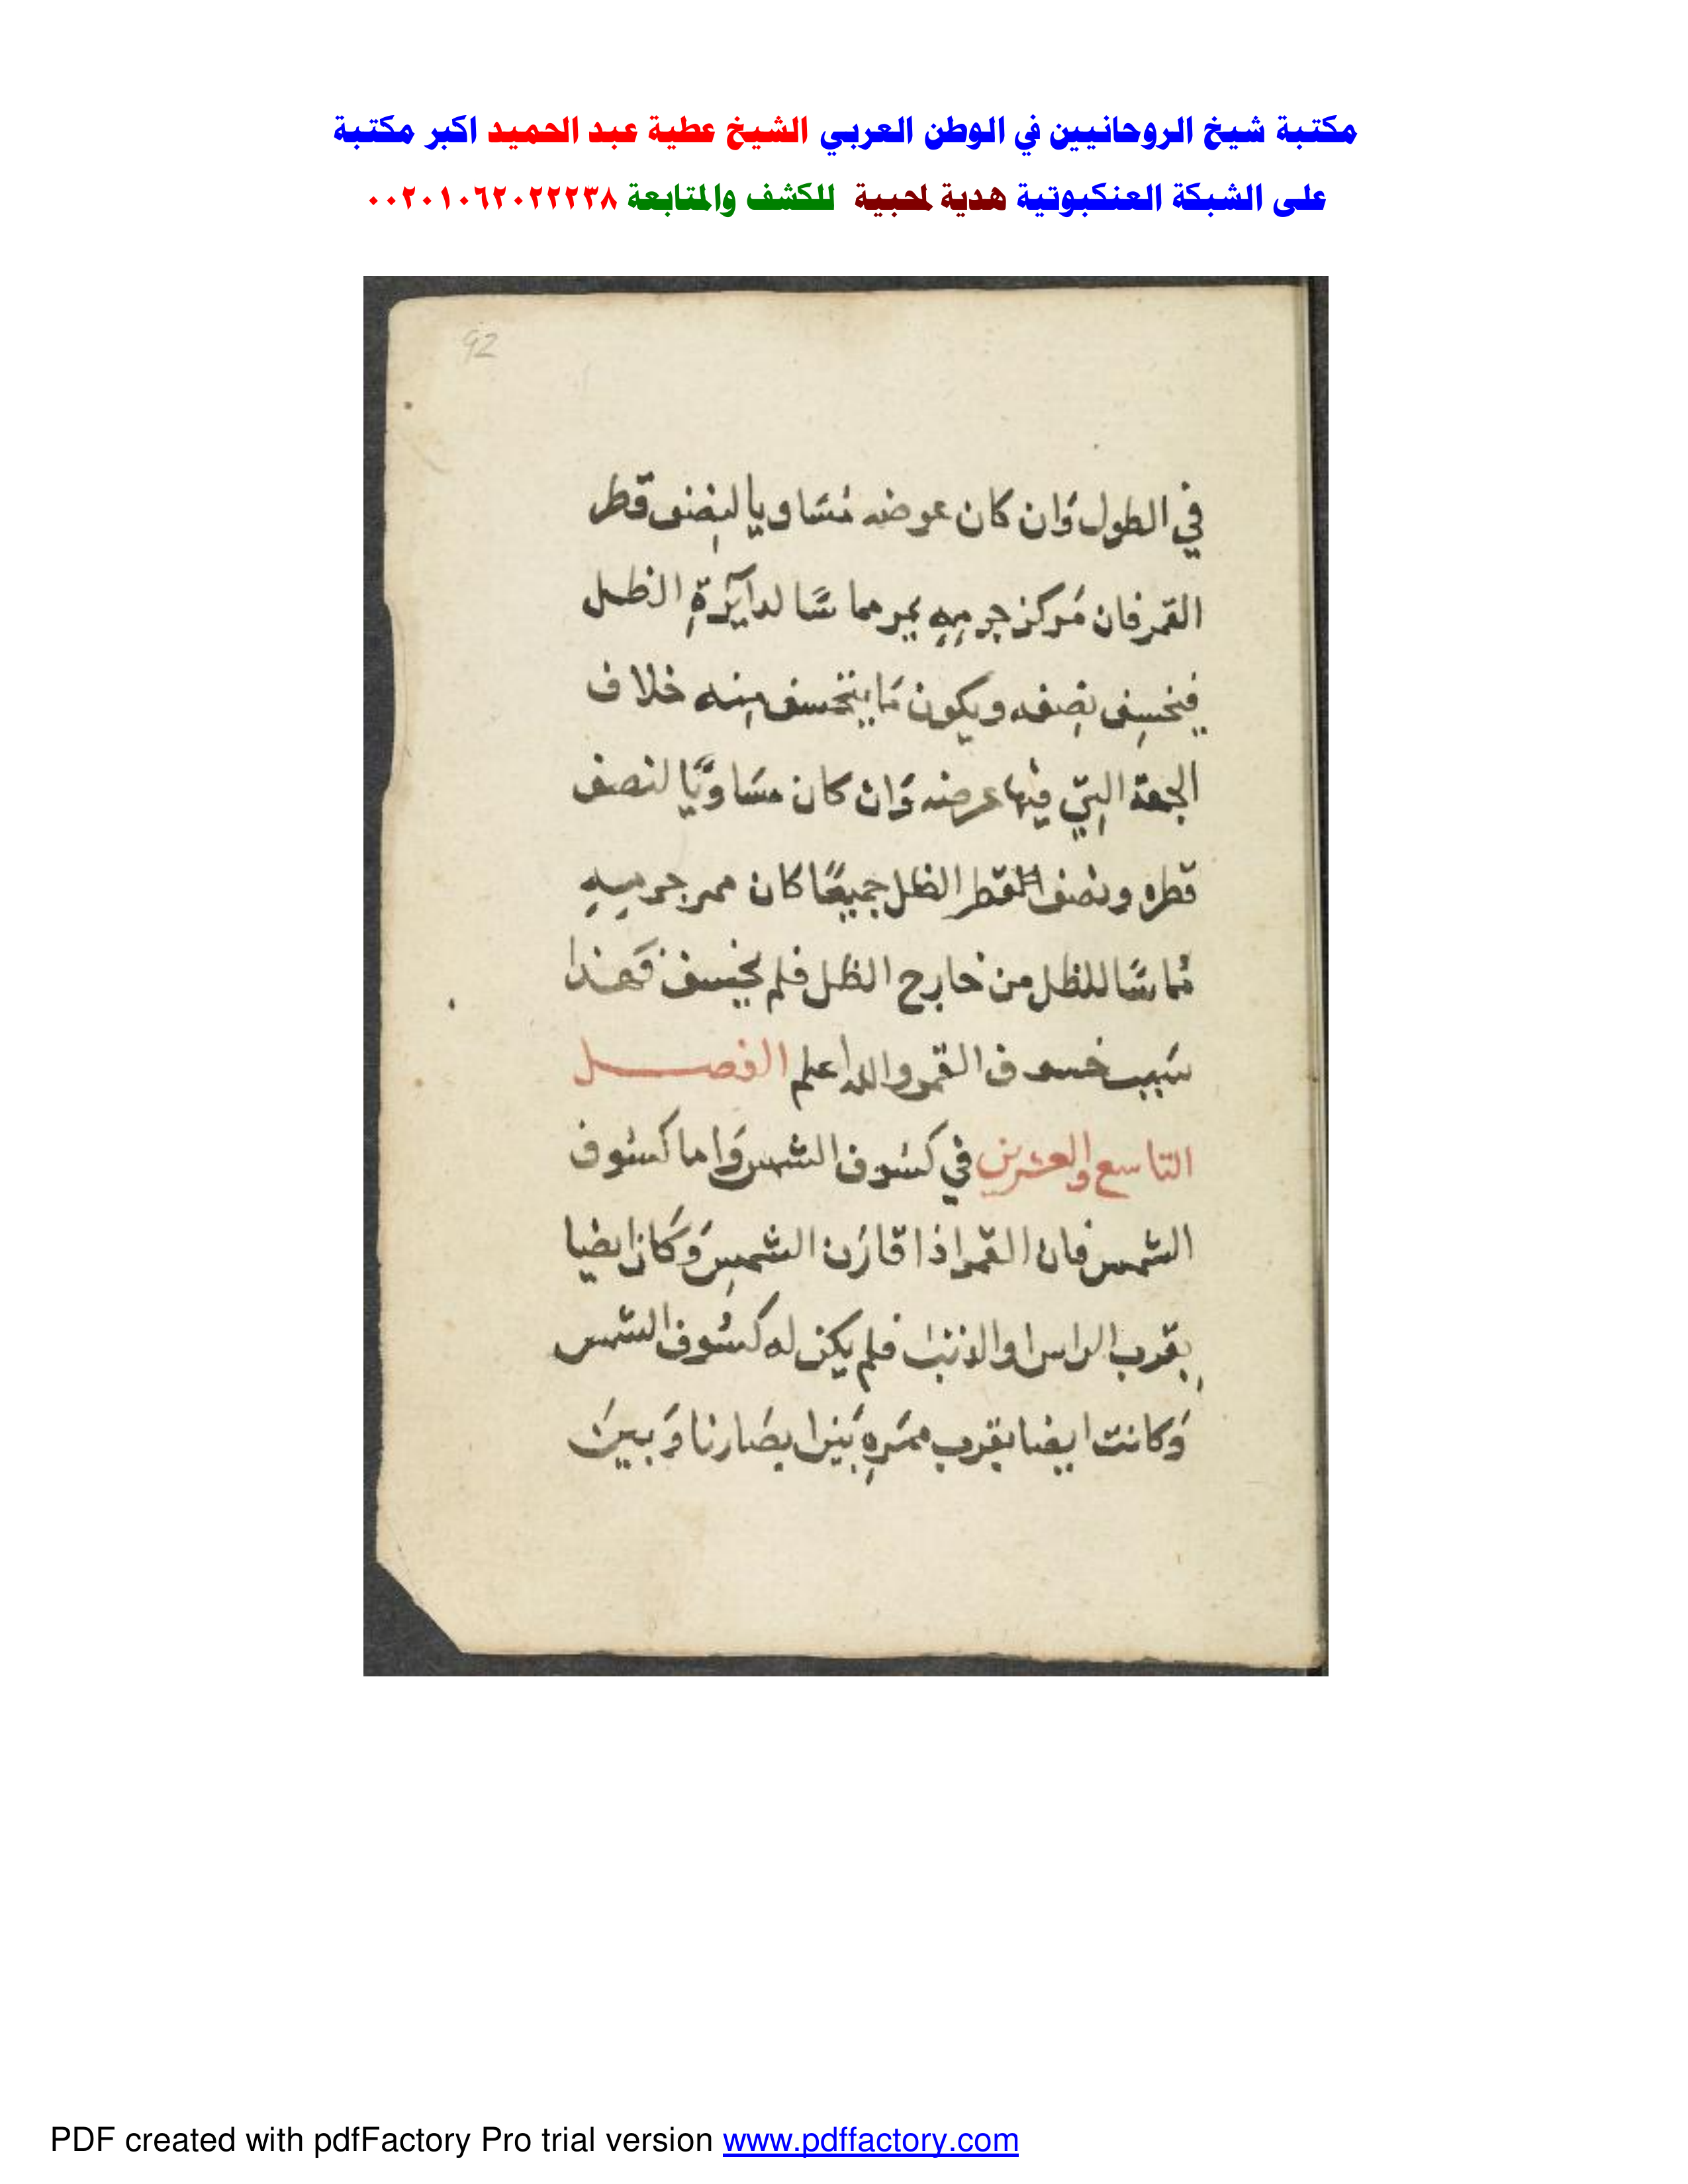 مكتبة شيخ الروحانيين في الوطن العربي الشيخ عطية عبد الحميد اكبر مكتبة
على الشبكة العنكبوتية هدية لمحبية للكشف والمتابعة ٠٠٢٠١٠٦٢٠٢٢٢٣٨
92
في الطول وَان كان عرضه مُسَاويا لنِصف قطر
القمر فان مَركز جرمِهِ يمر مماسًّا لدآيرَةِ الظل
فينخسِف نصِفه ويكون مَا ينخسف مِنه خلاف
الجهة التِي فيها عرضه وَان كان مسَاويًا لنصف
قطره ونصف قطر الظل جميعًا كان ممر جرمِهِ
مُماسًّا للظل من خارج الظل فلم يخسف فهَذا
سَبب خسوف القمر والله اعلم الفصل
التاسع والعشرين في كسُوف الشمس وَاما كسُوف
الشمس فان القمر اذا قارَن الشمسِ وَكَان ايضا
بِقرب الراس او الذنب فلم يكن له كسُوف الشمس
وَكانت ايضا بقرب ممَرهِ بَين ابصَارنا وَبين
PDF created with pdfFactory Pro trial version www.pdffactory.com